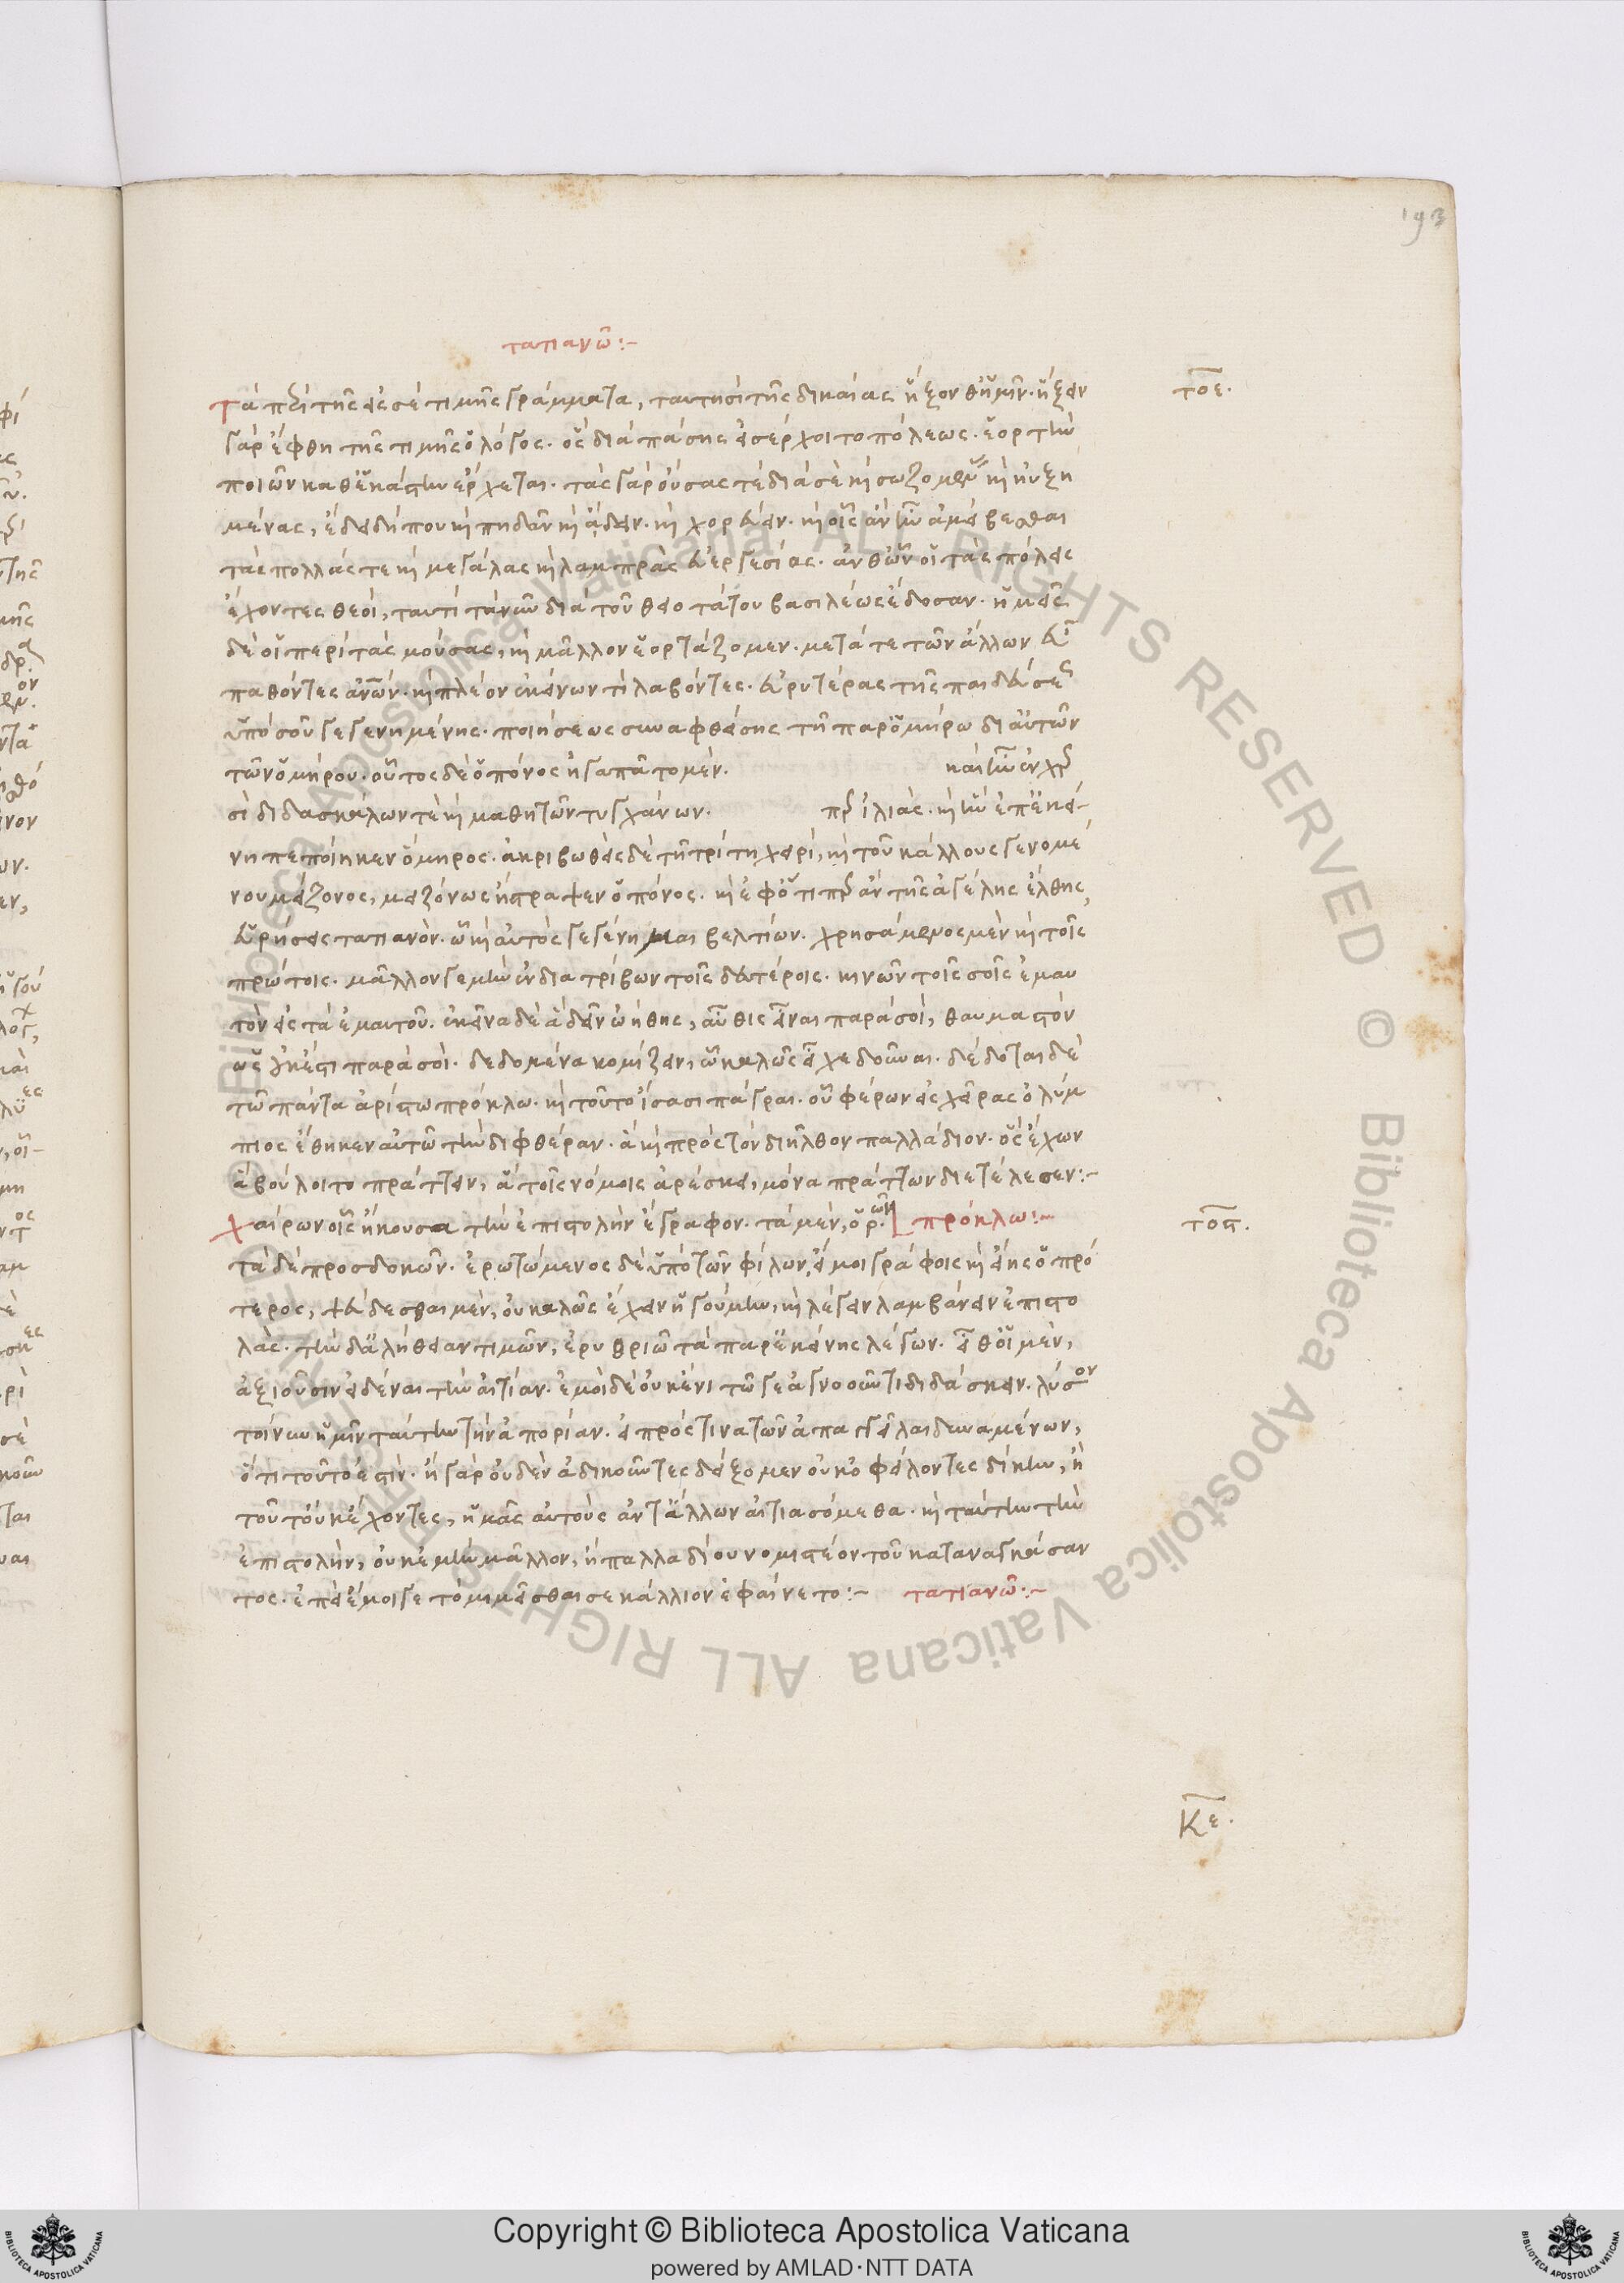 193
τατιανῶ:-
τοε.
Τὰ περὶ τῆς εἰς σὲ τιμῆς γράμματα, ταυτησὶ τῆς δικαίας ἧξον θ᾽ ἡμῖν. ἧξειν
γὰρ ἔφθη τῆς τιμῆς ὁ λόγος. ὃς διὰ πάσης εἰσέρχοιτο πόλεως. ἑορτὴν
ποιῶν καθ᾽ ἑκάστην ἔρχεται. τὰς γὰρ οὔσας τε διὰ σὲ καὶ σωζομένας καὶ ηὐξη
μένας, ἔδει δήπου καὶ πηδᾶν καὶ ᾄδειν. καὶ χορεύειν. καὶ οἷς ἂν ἦν ἀμείβεσθαι
τὰς πολλάς τε καὶ μεγάλας καὶ λαμπρὰς εὐεργεσίας. ἀνθ᾽ ὧν οἱ τὰς πόλεις
ἔχοντες θεοί, ταυτὶ τὰ νῦν διὰ τοῦ θειοτάτου βασιλέως ἔδοσαν. ἡμεῖς
δὲ οἱ περὶ τὰς μούσας, καὶ μᾶλλον ἑορτάζομεν. μετά τε τῶν ἄλλων εὖ
παθόντες ἀνθρώπων. καὶ πλέον ἐκείνων τι λαβόντες. εὐρυτέρας τῆς παιδεύσεως
ὑπὸ σοῦ γεγενημένης. ποιήσεως συναφθείσης τῇ παρ᾽ ὁμήρω δι᾽ αὐτῶν
τῶν ὁμήρου. οὗτος δὲ ὁ πόνος ἠγαπᾶτο μὲν. καὶ ἦν ἐν χερ
σὶ διδασκάλων τὲ καὶ μαθητῶν τυγχάνων. περ ἰλιὰς. καὶ ἣν ἐπ᾽ ἐκεί-
νη πεποίηκεν ὅμηρος. ἀκριβωθεὶς δὲ τῇ τρίτη χειρί, καὶ τοῦ κάλλους γενομέ
νου μείζονος, μειζόνως ἤστραψεν ὁ πόνος. καὶ ἐφ᾽ ὅ τι περ ἂν τῆς ἀγέλης ἔλθης,
εὑρήσεις τατιανόν. ᾧ καὶ αὐτὸς γεγένημαι βελτίων. χρησάμενος μὲν καὶ τοῖς
πρώτοις. μᾶλλον γε μὴν ἐνδιατρίβων τοῖς δευτέροις. κινῶν τοῖς σοῖς ἐμαυ
τὸν εἰς τὰ ἐμαυτοῦ. ἐκεῖνα δὲ ἃ δεῖν ᾠήθης, αὖθις εἶναι παρὰ σοί, θαυμαστὸν
ὡς οὐκ ἔστι παρὰ σοί. δεδομένα κομίζειν, ᾧ καλῶς εἶχε δοῦναι. δέδοται δὲ
τῷ πάντα ἀρίστω πρόκλω. καὶ τοῦτο ἴσασι πάτραι. οὗ φέρων εἰς χεῖρας ὀλύμ
πιος ἔθηκεν αὐτῷ τὴν διφθέραν. ἃ καὶ πρὸς τὸν διῆλθον παλλάδιον. ὃς ἔχων
ἃ βούλοιτο πράττειν, ἃ τοῖς νόμοις ἀρέσκει, μόνα πράττων διετέλεσεν:-
τος.
Χαίρων οἷς ἤκουσα τὴν ἐπιστολὴν ἔγραφον. τὰ μέν, ὁρῶν πρόκλω:-
τὰ δὲ προσδοκῶν. ἐρωτώμενος δὲ ὑπὸ τῶν φίλων, εἴ μοι γράφοις καὶ εἴης ὁ πρό
τερος, ψεύδεσθαι μὲν, οὐ καλῶς ἔχειν ἡγούμην, καὶ λέγειν λαμβάνειν ἐπιστο
λάς. τὴν δ᾽ ἀλήθειαν τιμῶν, ἐρυθριῶ τὰ παρ᾽ ἐκείνης λέγων. εἶθ᾽ οἱ μὲν,
ἀξιοῦσιν εἰδέναι τὴν αἰτίαν. ἐμοὶ δὲ οὐκ ἔνι τῷ γε ἀγνοοῦντι διδάσκειν. λῦσον
τοίνυν ἡμῖν ταύτην τὴν ἀπορίαν. ἢ πρός τινα τῶν ἀπαγγεῖλαι δυναμένων,
ὅ τι τοῦτό ἐστιν. ἢ γὰρ οὐδὲν ἀδικοῦντες δείξομεν οὐκ ὀφείλοντες δίκην, ἢ
τοῦτο οὐκ ἔχοντες, ἡμᾶς αὐτοὺς ἀντ᾽ ἄλλων αἰτιασόμεθα. καὶ ταύτην τὴν
ἐπιστολήν, οὐκ ἐμὴν μᾶλλον, ἢ παλλαδίου νομιστέον τοῦ καταναγκάσαν
τος. ἐπεὶ ἔμοιγε τὸ μιμεῖσθαι σε κάλλιον ἐφαίνετο:- τατιανῶ:-
κε.
Copyright © Biblioteca Apostolica Vaticana
powered by AMLAD·NTT DATA